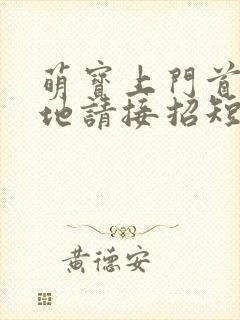 萌寶上門首
地請接招短
黃德安